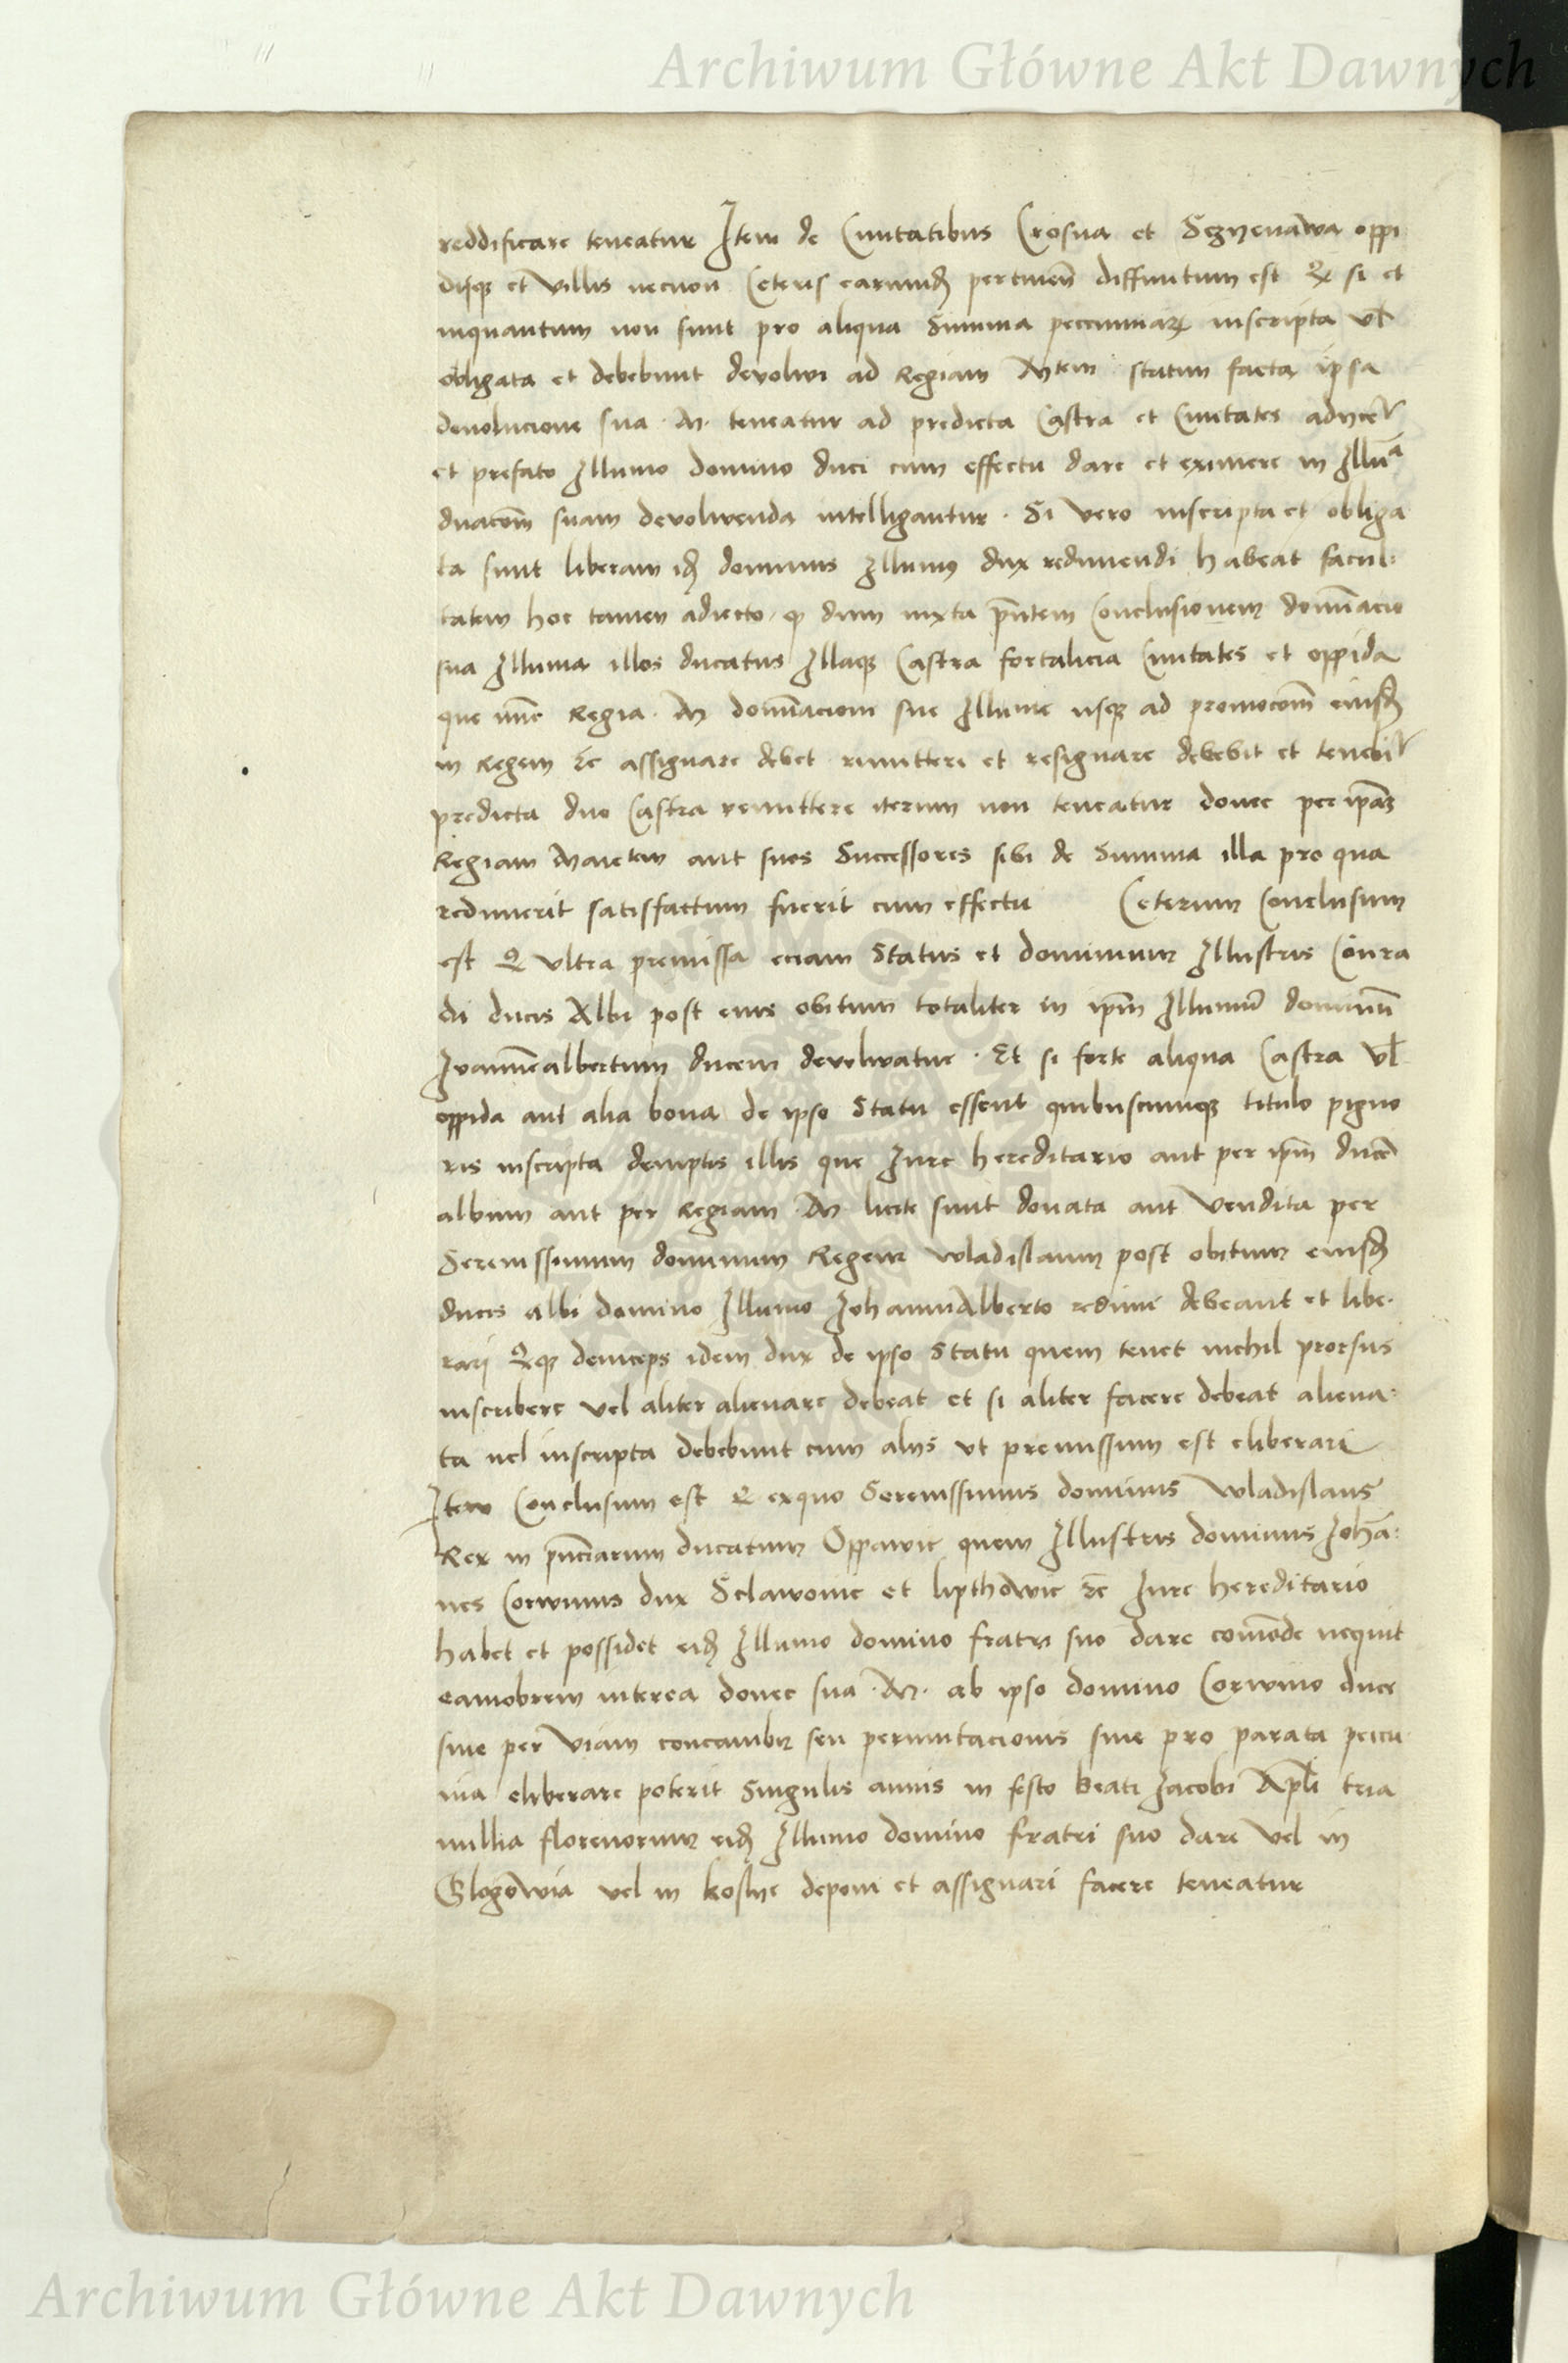 Archiwum Główne Akt Dawnych
reddificare teneatur Item de Civitatibus Crosna et Sczyenawa oppi
disq̃ et villis necnon Ceteris earumd̃ pertinen̄ diffinitum est Q̃ si et
inquantum non sunt pro aliqua Summa peccuniar̃ inscripta vl̃
obligata et debebunt devolvi ad Regiam Mtem statim facta ipsa
devolucione sua . M . teneatur ad predicta Castra et Civitates
et prefato Illumo domino duci cum effectu dare et eximere in
suam devolvenda intelligantur . Si vero inscripta et obliga
ta sunt liberam id̃ dominus Illumus dux redimendi habeat facul:
tatem hoc tamen adiecto q̃ dum iuxta pñtem Conclusionem domīacio
sua Illuma illos ducatus Illaq̃ Castra fortalicia Civitates et oppida
que nūc Regia . M dom̄acioni sue Illume usq̃ ad promocōm eiusd̃
in Regem &c̄ assignare debet rimittere et resignare debebit et
predicta duo Castra remittere iterum non teneatur donec per ip̄am
Regiam Maietem aut suos Successores sibi de Summa illa pro qua
redimerit satisfactum fuerit cum effectu Ceterum Conclusum
est Q̃ ultra premissa eciam Status et dominium Illustris Conra
di ducis Albi post eius obitum totaliter in ip̄m Illumum dominū
Ioannēalbertum ducem devolvatur . Et si forte aliqua Castra vl̃
oppida aut alia bona de ipso Statu essent quibuscumq̃ titulo pigno
ris inscripta demptis illis que Iure hereditario aut per ip̄m ducē
album aut per Regiam . M . licite sunt donata aut vendita per
Serenissimum dominum Regem wladislaum post obitum eiusd̃
ducis albi domino Illumo IohanniAlberto redimi debeant et libe.
rari Q̃q̃ deinceps idem dux de ipso Statu quem tenet nichil prorsus
inscribere vel aliter alienare debeat et si aliter facere debeat aliena:
ta vel inscripta debebunt cum aliis ut premissum est eliberari
Item Conclusum est Q̃ exquo Serenissimus dominus wladislaus
Rex in ducatum Oppavie quem Illustris dominus Iohā:
nes Corvinus dux Sclavonie et lipthowie &c̄ Iure hereditario
habet et possidet eid̃ Illumo domino fratri suo dare com̄ode nequit
eamobrem interea donec sua . M . ab ipso domino Corwino duce
sive per viam concambii seu permutacionis sive pro parata peccu
nia eliberare poterit Singulis annis in festo beati Iacobi Apl̃i tria
millia florenorum eid̃ Illumo domino fratri suo dare vel in
Glogowia vel in kosle deponi et assignari facere teneatur
Archiwum Główne Akt Dawnych